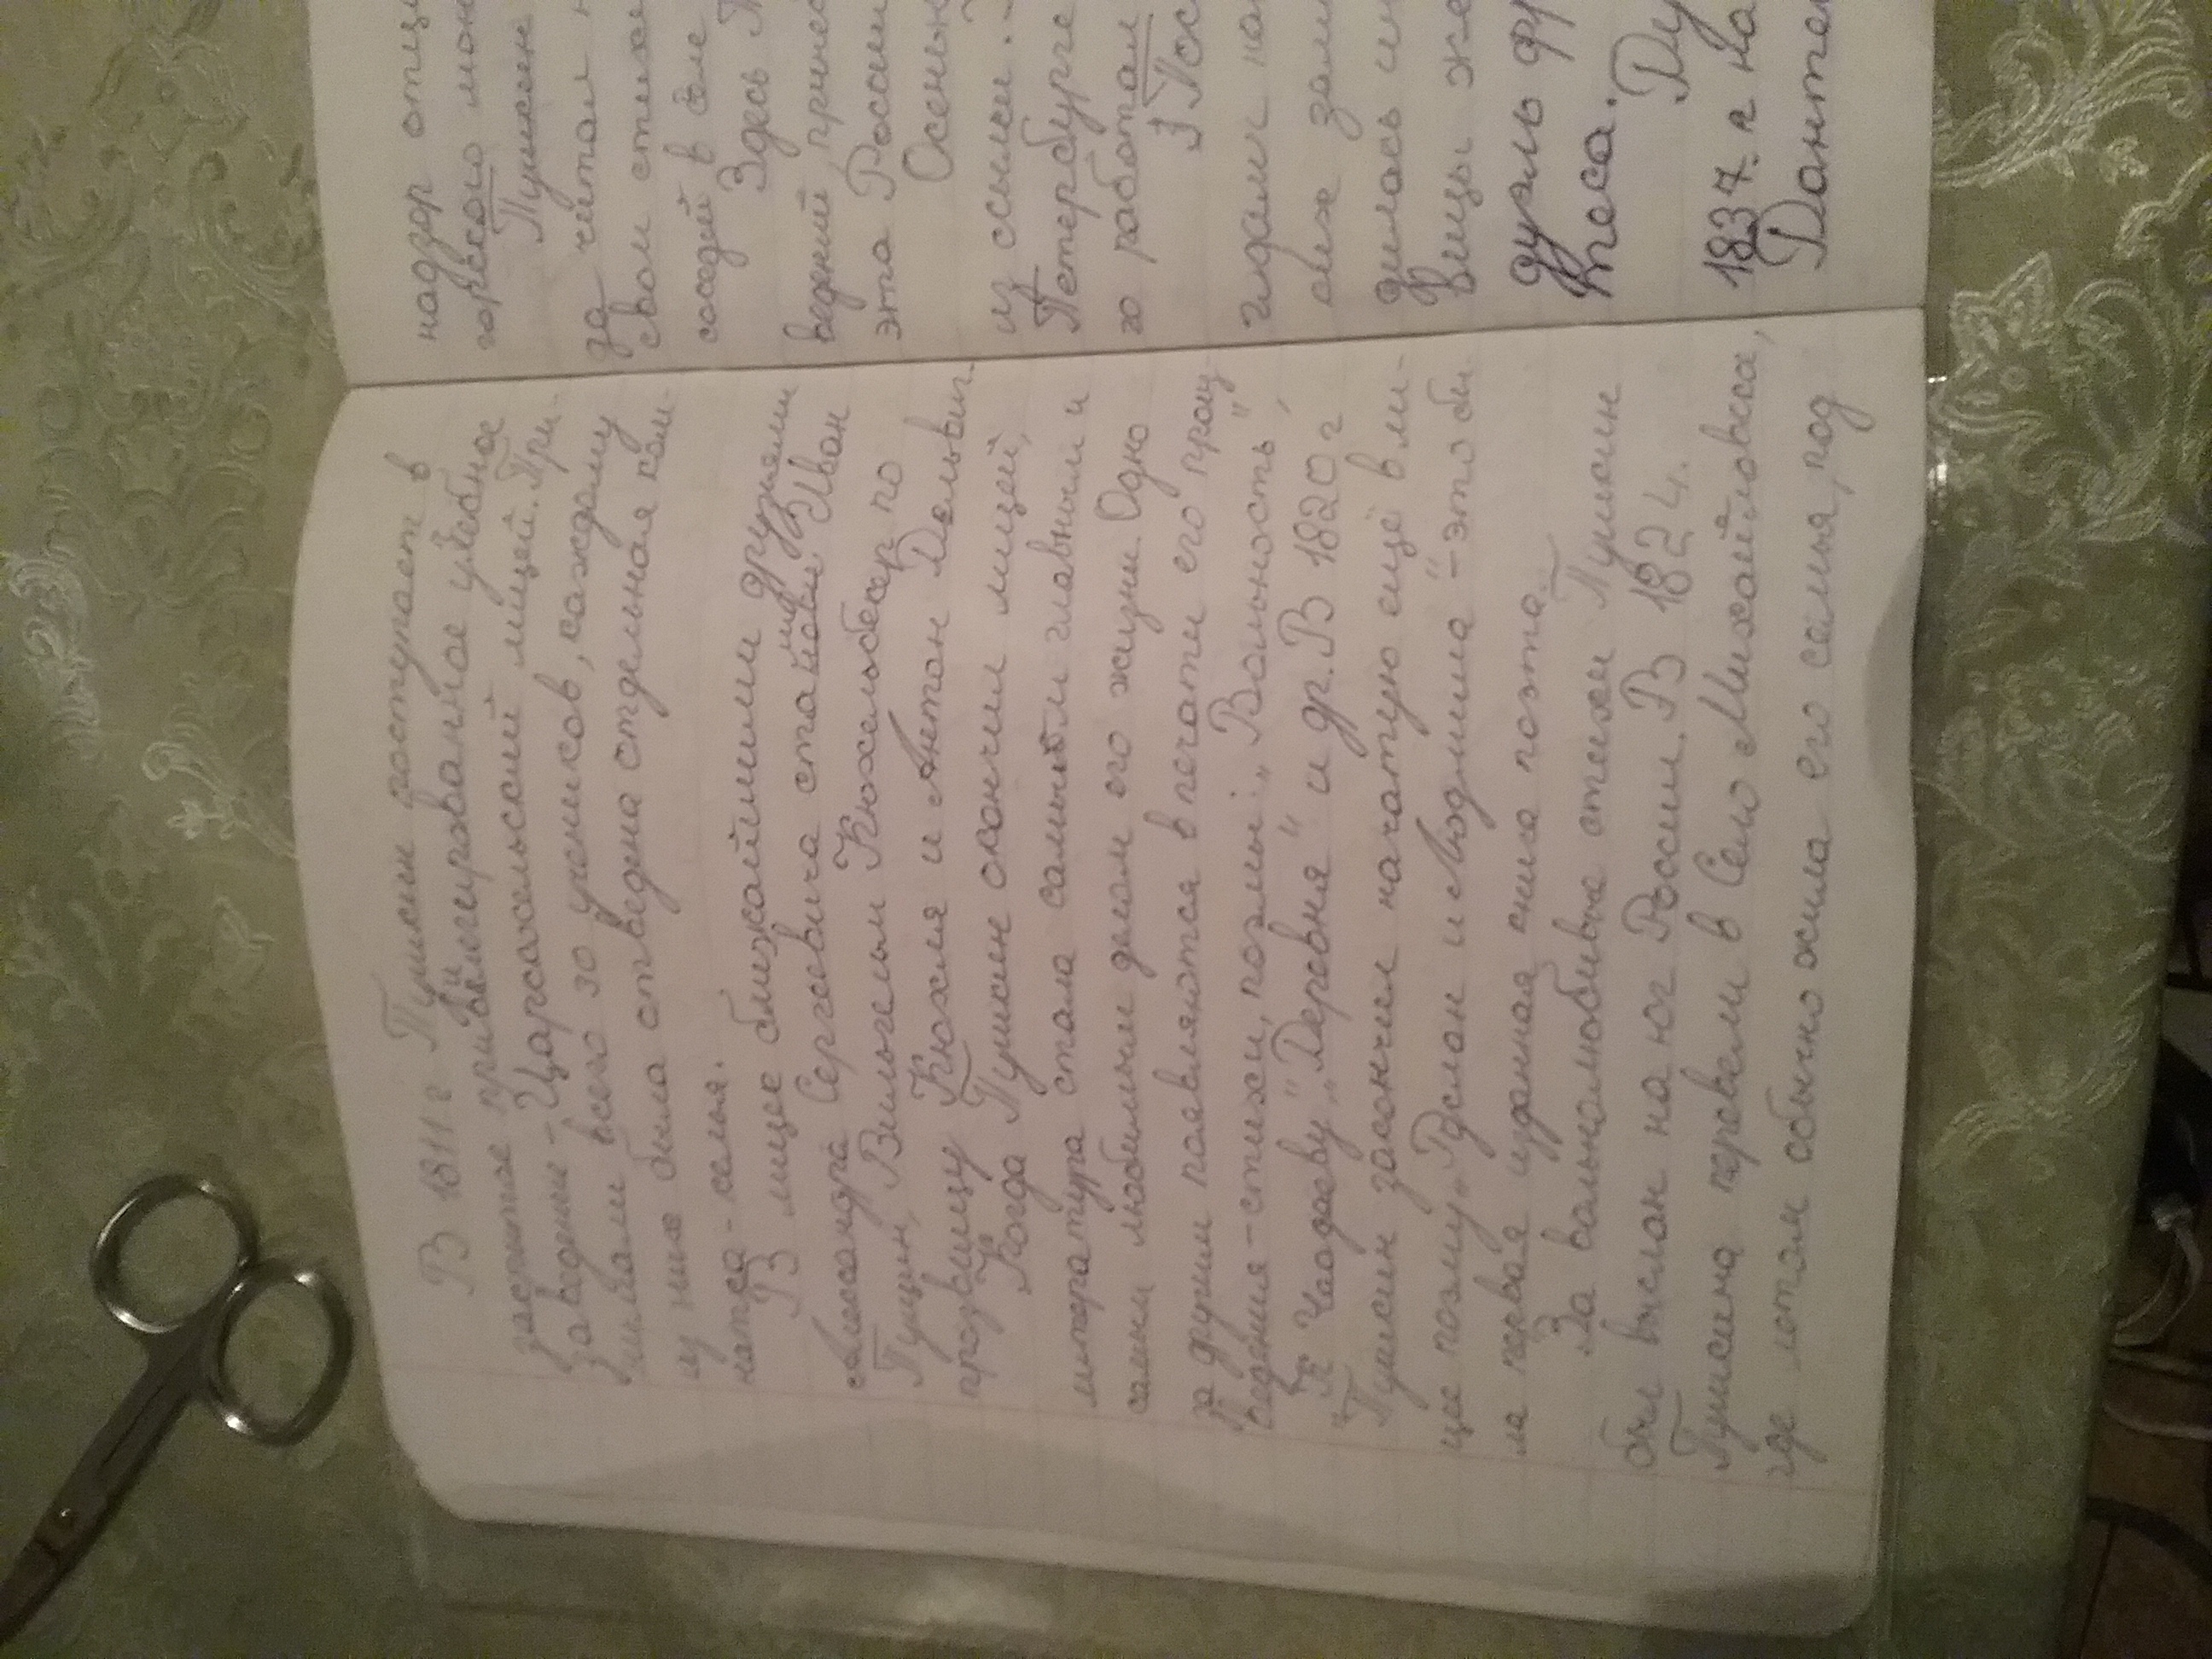 В 1811 г Пушкин поступает в
закрытое привилегированное учебное
заведение - Царскосельский лицей. При-
нимали всего 30 учеников, каждому
из них была отведена отдельная ком-
ната - келья.
В лицее ближайшими друзьями
Александра Сергеевича становились Иван
Пущин, Вильгельм Кюхельбекер по
прозвищу Кюхля и Антон Дельвиг.
Когда Пушкин окончил лицей,
литература стала самыми главным и
самым любимым делом его жизни. Одно
за другим появляются в печати его произ-
ведения - стихи, поэмы: „Вольность",
„К Чаадаеву", „Деревня" и др. В 1820 г
Пушкин закончил начатую ещё в ли-
цее поэму „Руслан и Людмила" - это бы-
ла первая изданная книга поэта.
За вольнолюбивые стихи Пушкин
был выслан на юг России. В 1824.
Пушкина перевели в Село Михайловское,
где летом обычно жила его семья, под
надзор отц
Пушкин
за читал
свои стихи
соседей в
Здесь
ведений, принес
эта России
Осенью
из ссылки.
Петербурге
го работал
Пос
дилось
вицы же
дуэль фр
теса.
Ду
1837 г. на
Данте